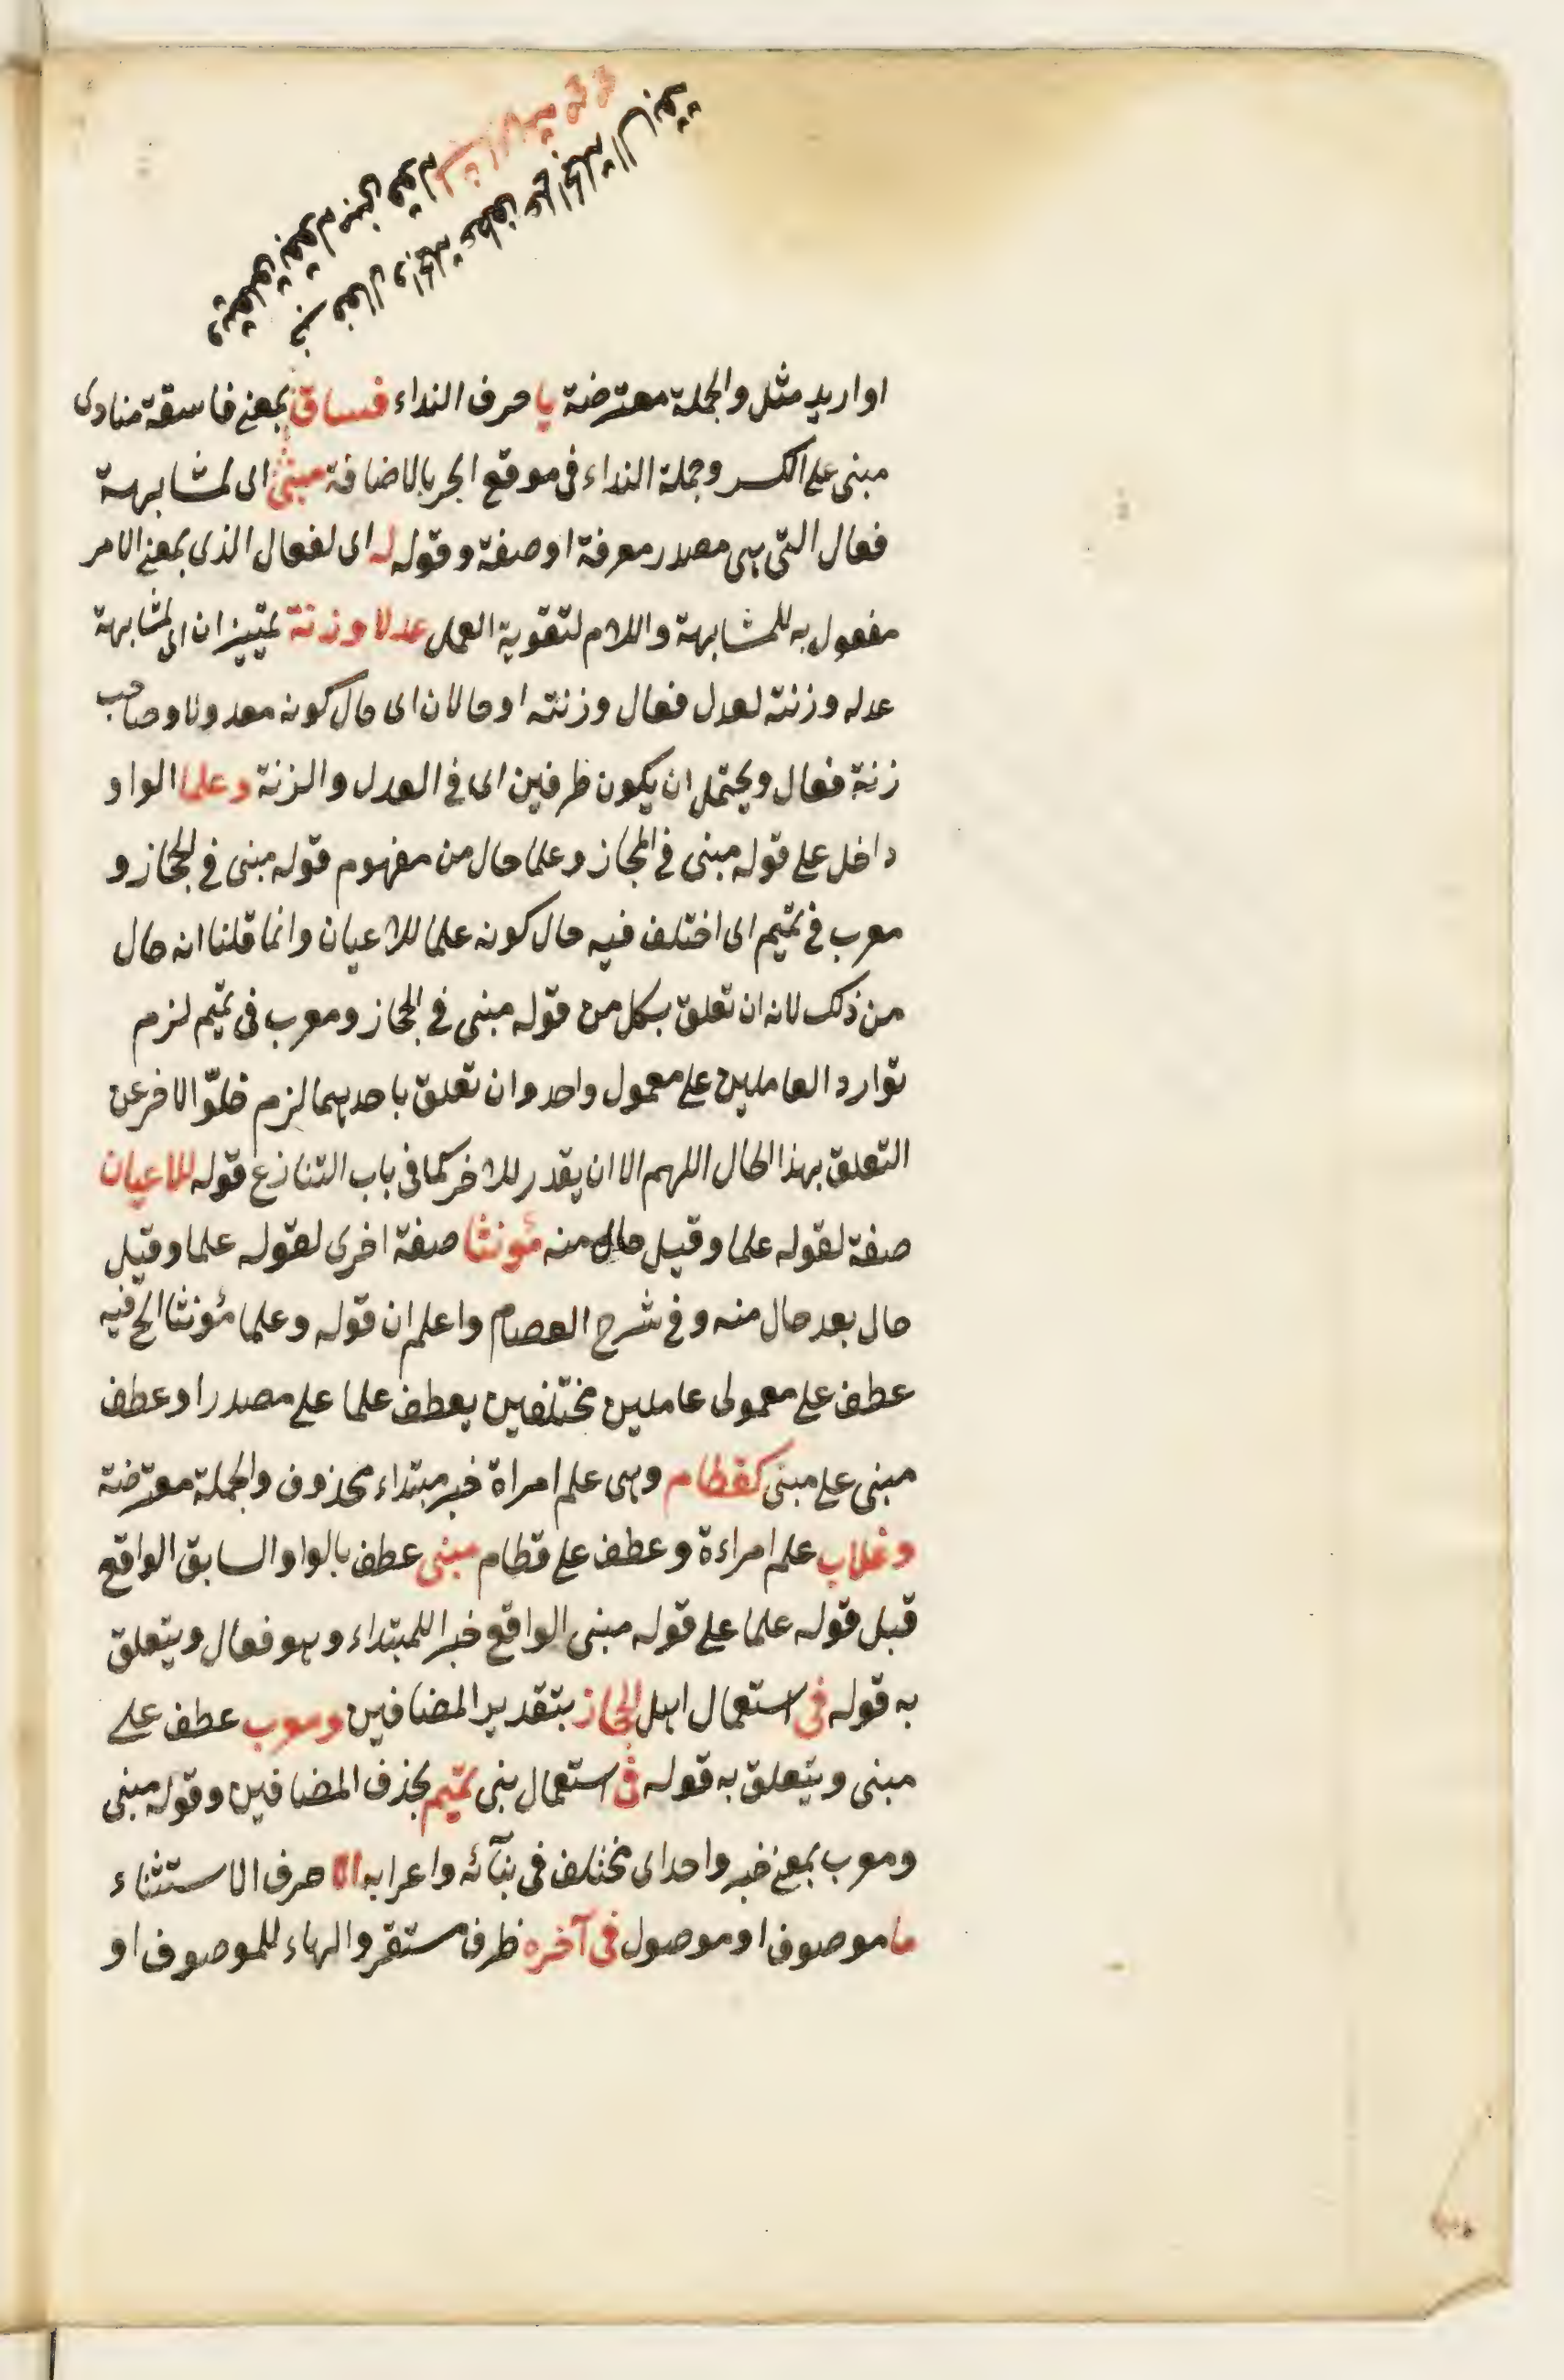 او اريد مثل والجملة معترضة يا حرف النداء فساق بمعنى فاسقة منادى
مبنى على الكسر وجملة النداء فى موقع الجر بالاضافة مبنى اى لمشابهة
فعال التى هى مصدر معرفة او صفة وقوله له اى لفعال الذى بمعنى الامر
مفعول به للمشابهة واللام لتقوية العمل عدلا وزنة تمييزان اى لمشابهة
عدله وزنته لعدل فعال وزنته او حالان اى حال كونه معدولا وصاحب
زنة فعال ويحتمل ان يكون ظرفين اى فى العدل والزنة وعلما الواو
داخل على قوله مبنى فى الحجاز وعلما حال من مفهوم قوله مبنى فى الحجاز و
معرب فى تميم اى اختلف فيه حال كونه علما للاعيان وانما قلنا انه حال
من ذلك لانه ان تعلق بكل من قوله مبنى فى الحجاز ومعرب فى تميم لزم
توارد العاملين على معمول واحد وان تعلق باحدهما لزم خلوّ الاخر عن
التعلق بهذا الحال اللهم الا ان يقدر للاخر كما فى باب التنازع قوله للاعيان
صفة لقوله علما وقيل حال منه مؤنثا صفة اخرى لقوله علما وقيل
حال بعد حال منه وفى شرح العصام واعلم ان قوله وعلما مؤنثا الخ فيه
عطف على معمولى عاملين مختلفين بعطف علما على مصدرا وعطف
مبنى على مبنى كقطام وهى علم امراة خبر مبتداء محذوف والجملة معترضة
وغلاب علم امراءة وعطف على قطام مبنى عطف بالواو السابق الواقع
قبل قوله علما على قوله مبنى الواقع خبرا للمبتداء وهو فعال ويتعلق
به قوله فى استعمال اهل الحجاز بتقدير المضافين ومعرب عطف على
مبنى ويتعلق به قوله فى استعمال بنى تميم بحذف المضافين وقوله مبنى
ومعرب بمعنى خبر واحد اى مختلف فى بنآئه واعرابه الا حرف الاستثناء
ما موصوف او موصول فى آخره ظرف مستقر والهاء للموصوف او